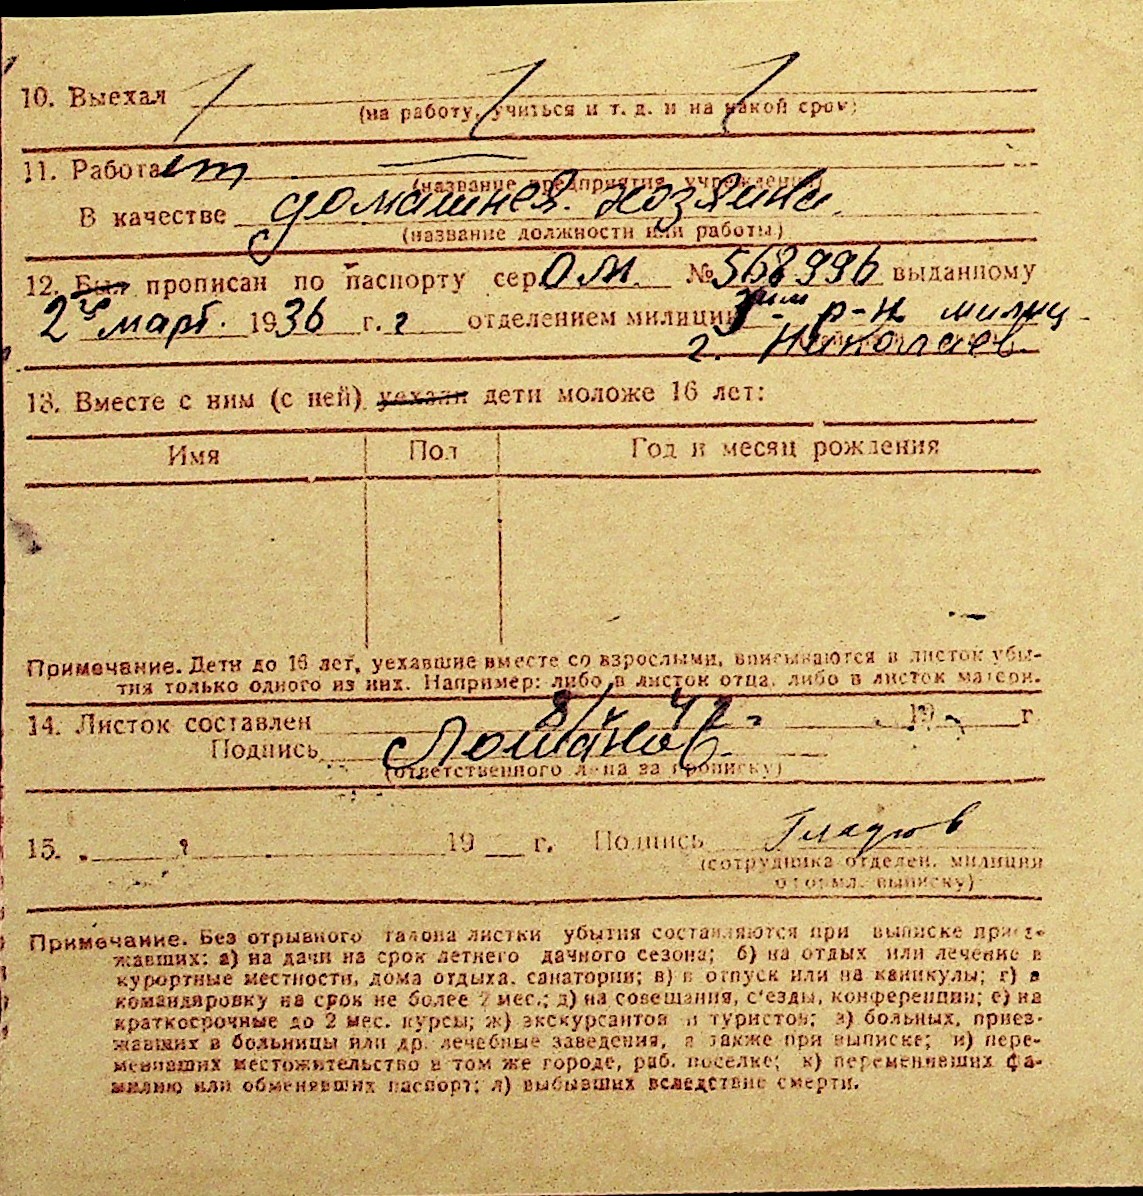 10. Выехал
(на работу, учиться и т. д. и на какой срок)
11. Работает —
(название предприятия, учреждения)
В качестве домашняя. хозяйка.
(название должности или работы)
12. Был прописан по паспорту сер. ОМ. № 568996 выданному
2го март. 1936 г. отделением милиции р-н милиц.
г. Николаев
13. Вместе с ним (с ней) уехали дети моложе 16 лет:
Имя Пол Год и месяц рождения
Примечание. Дети до 16 лет, уехавшие вместе со взрослыми, вписываются в листок убы-
тия только одного из них. Например: либо в листок отца, либо в листок матери.
14. Листок составлен 19 г.
Подпись
(ответственного лица за прописку)
15. 19 г. Подпись
(сотрудника отделен. милиции
оформл. выписку)
Примечание. Без отрывного талона листки убытия составляются при выписке приез-
жавших: а) на дачи на срок летнего дачного сезона; б) на отдых или лечение в
курортные местности, дома отдыха, санатории; в) в отпуск или на каникулы; г) в
командировку на срок не более 2 мес.; д) на совещания, с'езды, конференции; е) на
краткосрочные до 2 мес. курсы; ж) экскурсантов и туристов; з) больных, приез-
жавших в больницы или др. лечебные заведения, а также при выписке; и) пере-
менивших местожительство в том же городе, раб. поселке; к) переменивших фа-
милию или обменявших паспорт; л) выбывших вследствие смерти.